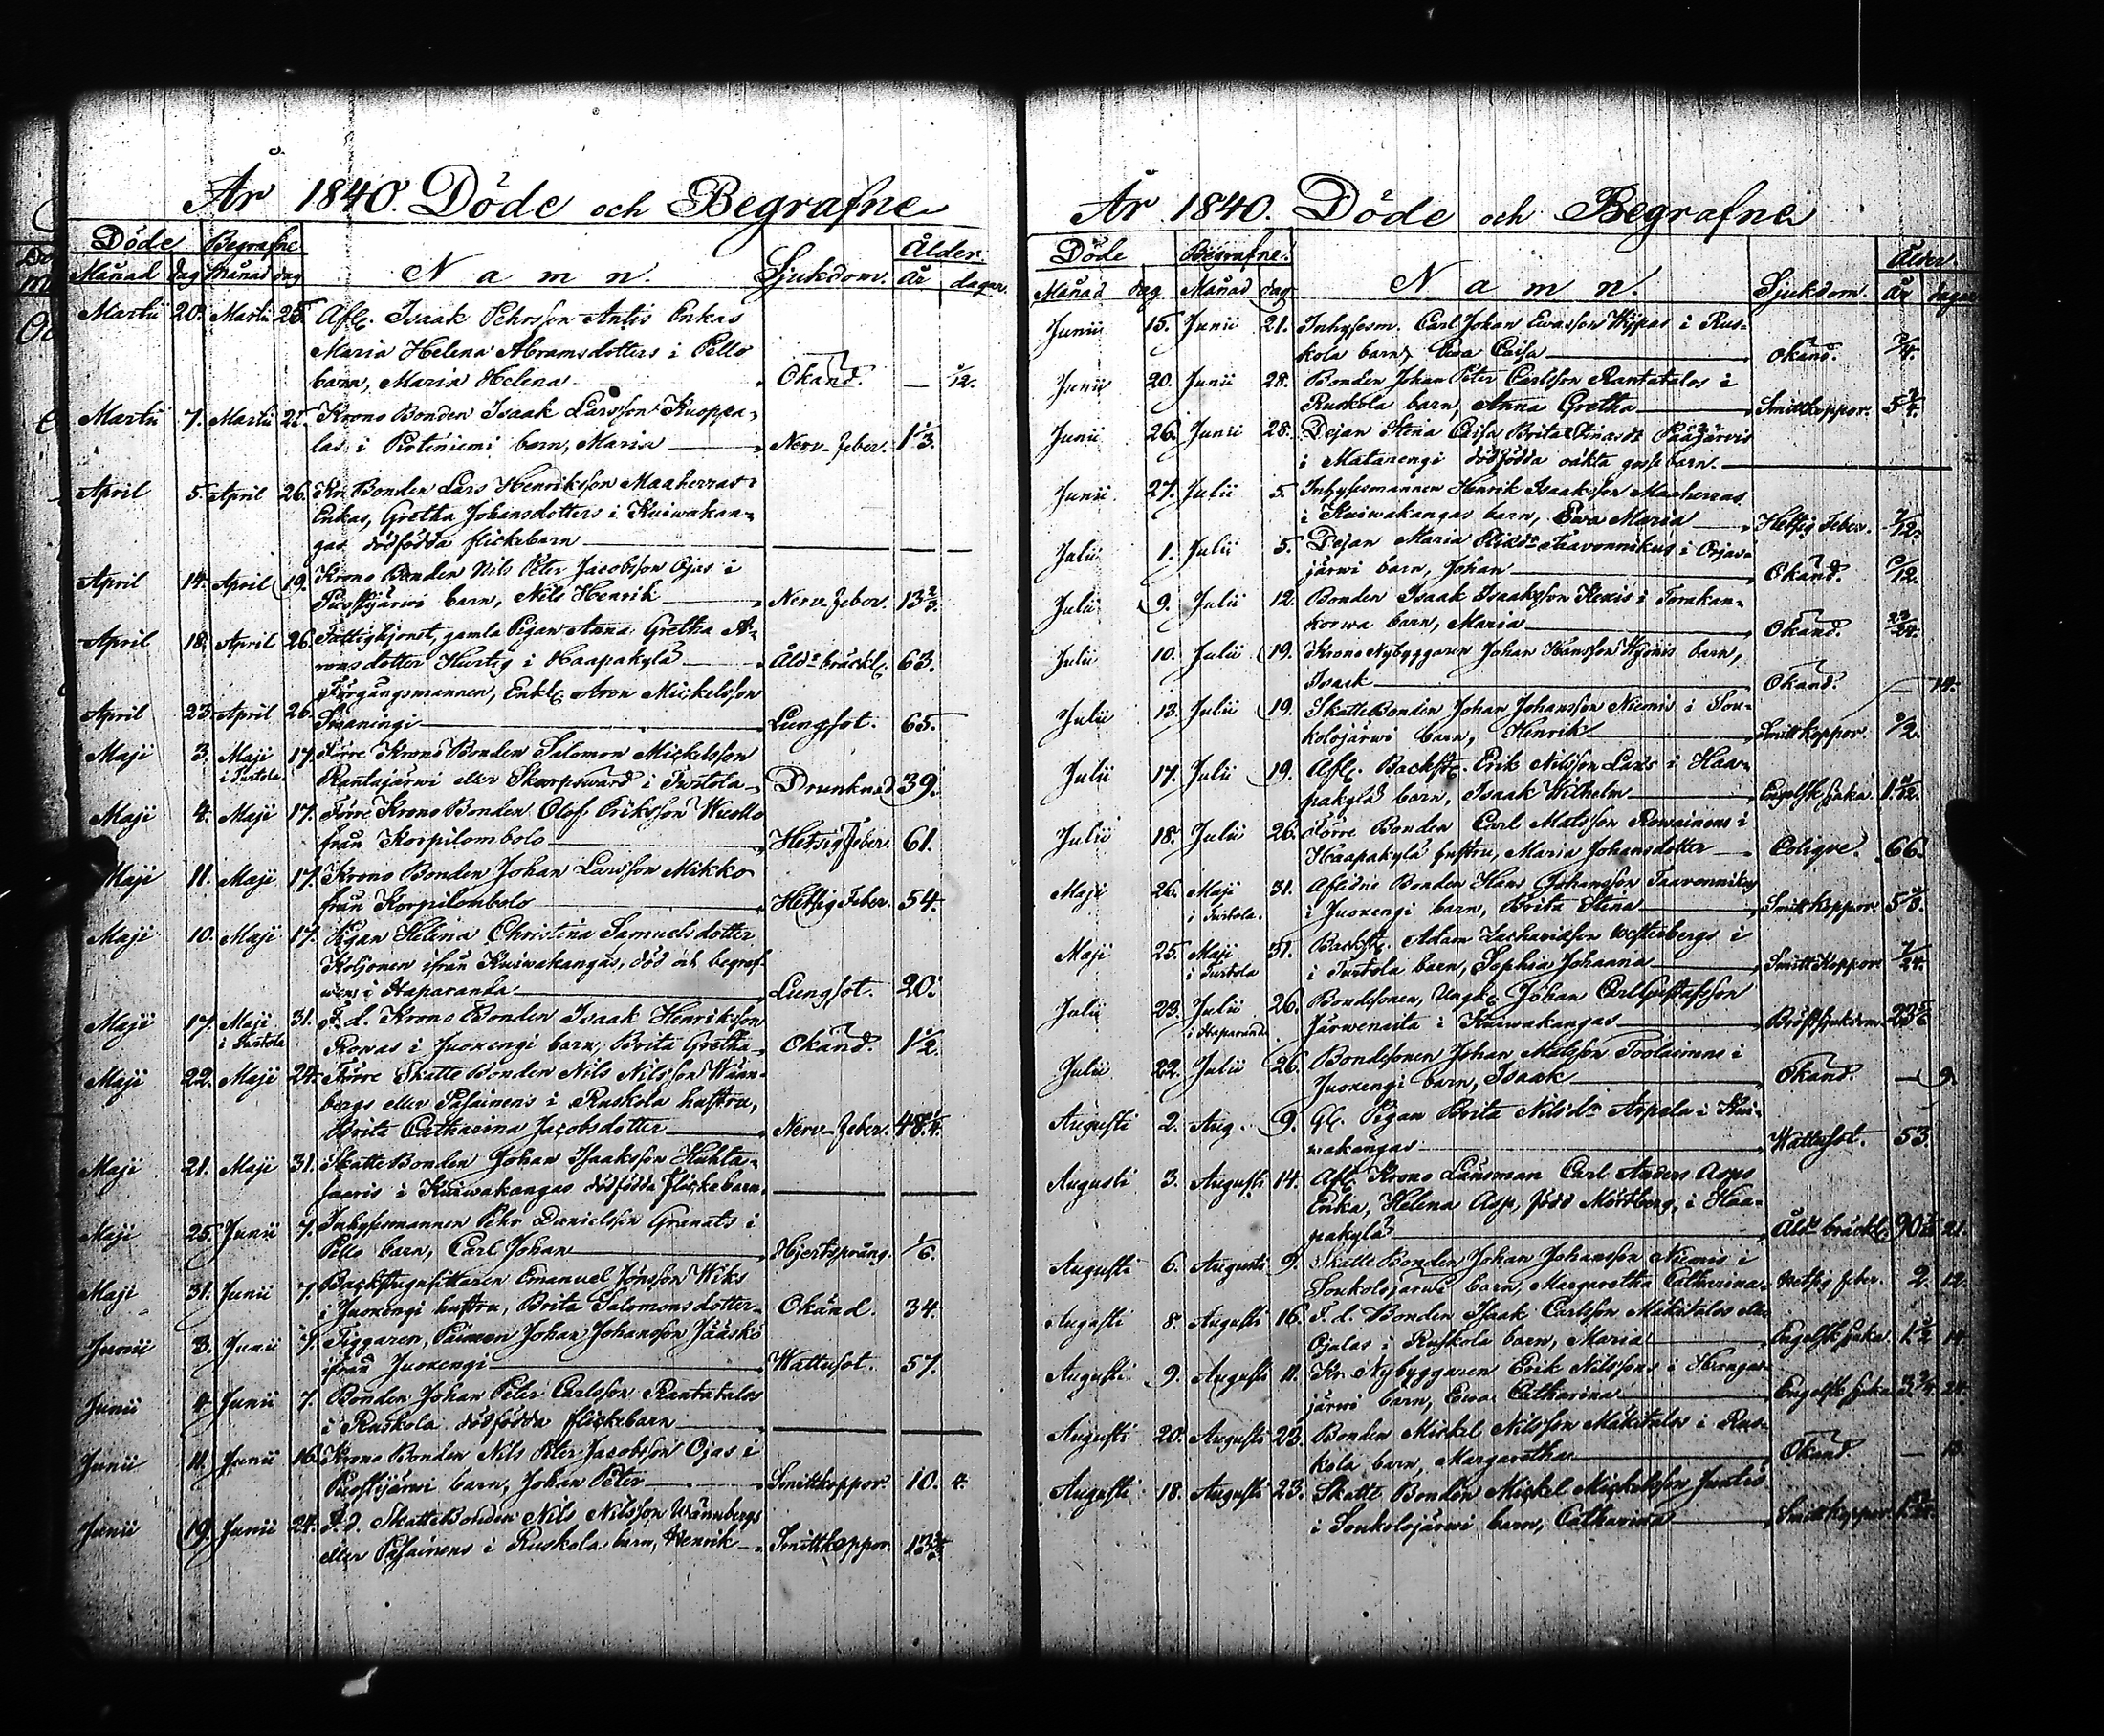 År 1840. Döde och Begrafne
Döde Begrafne Ålder.
Månad dag Månad dag N a m n. Sjukdom. År dagar.
Martii 20. Martii 25. Afl. Isaak Pehrsson Antis Enkas
Maria Helena Abramsdotters i Pello
barn, Maria Helena Okänd. — 1/12.
Martii 7. Martii Krono Bonden Isaak Larsson Kuoppa-
las i barn, Maria Nerv-feber. 1 1/3.
April 5. April 26. Kr. Bonden Lars Henriksson Maaherras
Enkas, Gretha Johansdotters i Kuiwakan-
gas dödfödda flickebarn
April 14. April 19. Krono Bonden Nils Peter Jacobsson Ojas i
barn, Nils Henrik Nerv-feber. 13
April 18. April 26. Fattighjonet, gamla Pigan Anna Gretha A-
ronsdotter Hurtig i Haapakylä Åld. bräckl. 63.
Förgångsmannen, Enkl. Aron Mickelsson
April 23. April 26. Lungsot. 65.
Maji 3. Maji 17. Förre Krono Bonden Salomon Mickelsson
i Turtola. Rantajärwi eller Skarpswärd i Turtola Drunknad 39.
Maji 4. Maji 17. Förre Krono Bonden Olof Eriksson
från Korpilombolo Hetsig Feber. 61.
Maji 11. Maji 17. Krono Bonden Johan Larsson Mikko
från Korpilombolo Hetsig Feber. 54.
Maji 10. Maji 17. Pigan Helena Christina Samuelsdotter
Koljonen ifrån Kuiwakangas, död och begraf-
wen i Haparanda Lungsot. 20.
Maji 17. Maji 31. F. d. Krono Bonden Isaak Henriksson
i Turtola Rowas i Juoxengi barn, Brita Gretha Okänd. 1 1/2.
Maji 22. Maji 24. Förre Skatte Bonden Nils Nilsson Wän-
bergs eller Pasainens i Ruskola hustru,
Brita Catharina Jacobsdotter Nerv-feber. 48
Maji 21. Maji 31. Skatte Bonden Johan Isaaksson Huhta-
saaris i Kuiwakangas dödfödda flickebarn.
Maji 25. Junii 7. Inhysesmannen Pehr Danielsson Granats i
Pello barn, Carl Johan Hjertsprång. 1/6.
Maji 31. Junii 7. Backstugusittaren Emanuel Jönsson Wiks
i Juoxengi hustru, Brita Salomonsdotter Okänd. 34.
Junii 3. Junii 7. Tiggaren, Johan Johansson Jääskö
ifrån Juoxengi Wattusot. 57.
Junii 4. Junii 7. Bonden Johan Peter Carlsson Rantatalos
i Ruskola dödfödda flickebarn
Junii 11. Junii 16. Krono Bonden Nils Peter Jacobsson Ojas i
barn, Johan Peter Smittkoppor. 10. 4.
Junii 19. Junii 24. F. d. Skatte Bonden Nils Nilsson Wännbergs
eller Pasainens i Ruskola barn, Henrik Smittkoppor. 13
År 1840. Döde och Begrafne
Döde Begrafne. Ålder
Månad dag Månad dag N a m n. Sjukdom. År dagar
Junii 15. Junii 21. Inhysesm. Carl Johan Ewasson i Rus-
kola barn, Ewa Caisa Okänd. 3/4.
Junii 20. Junii 28. Bonden Johan Peter Carlsson Rantatalos i
Ruskola barn, Anna Gretha Smittkoppor. 5
Junii 26. Junii 28. Dejan Stena Caisa Brita Pääjärwis
i Matarengi dödfödda oäkta gossebarn.
Junii 27. Julii 5. Inhysesmannen Henrik Isaaksson Maaherras
i Kuiwakangas barn, Ewa Maria Hetsig Feber. 7/12.
Julii 1. Julii 5. Dejan Maria Taavonnikus i
järwi barn, Johan Okänd.
Julii 9. Julii 12. Bonden Isaak Isaaksson i Tornkan-
korwa barn, Maria Okänd.
Julii 10. Julii 19. Krono Nybyggaren Johan Hansson barn,
Isaak Okänd. — 14.
Julii 13. Julii 19. Skatte Bonden Johan Johansson Niemis i Sou-
kolojärwi barn, Henrik Smittkoppor.
Julii 17. Julii 19. Afl. Backst. Erik Nilsson Lars i Haa-
pakylä barn, Isaak Wilhelm Engelsk sjuka.
Julii 18. Julii 26. Förre Bonden Carl Matsson Rowainens i
Haapakylä hustru, Maria Johansdotter Colique. 66.
Maji 26. Maji 31. Aflidne Bonden Hans Johansson Taavonnikus
i Turtola. i Juoxengi barn, Brita Stina Smittkoppor. 5
Maji 25. Maji 31. Backst. Adam Zachariasson Westerbergs i
i Turtola i Turtola barn, Sophia Johanna Smittkoppor. 7/24.
Julii 23. Julii 26. Bondesonen, Ungk. Johan Carl Gustafsson
i Haparanda Järwenaita i Kuiwakangas Bröstsjukdom. 23
Julii 22. Julii 26. Bondesonen Johan Matsson Toolainens i
Juoxengi barn, Isaak Okänd. — 9.
Augusti 2. Aug. 9. Gl. Pigan Brita Nilsdr Arpela i Kui-
wakangas Wattusot. 53.
Augusti 3. Augusti 14. Afl. Krono Länsman Carl Anders Asps
Enka, Helena Asp, född Mörtberg, i Haa-
pakylä Åldr. bräckl. 90 21.
Augusti 6. Augusti 9. Skatte Bonden Johan Johansson Niemis i
Soukolojärwi barn, Margaretha Catharina Hetsig feber. 2. 12.
Augusti 8. Augusti 16. F. d. Bonden Isaak Carlsson Mäkitalos eller
Ojalas i Ruskola barn, Maria Engelsk sjuka. 1 1/2 14.
Augusti 9. Augusti 11. Kr. Nybyggaren Erik Nilssons i
järwi barn, Ewa Catharina Engelsk sjuka 24.
Augusti 20. Augusti 23. Bonden Mickel Nilsson Mäkitalos i Rus-
kola barn, Margaretha Okänd. —
Augusti 18. Augusti 23. Skatte Bonden Mickel Mickelsson
i Soukolojärwi barn, Catharina Smittkoppor.